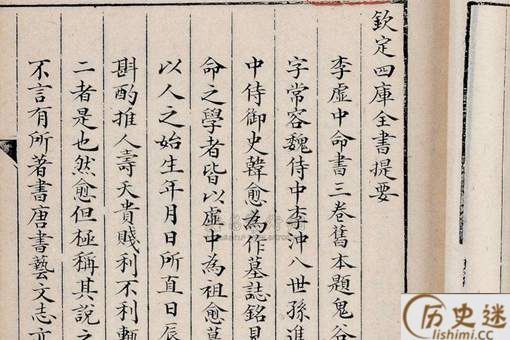 欽定四庫全書提要
李虛中命書三卷舊本題鬼谷
字常容魏侍中李沖八世孫進
中侍御史韓愈為作墓誌銘見
命之學者皆以虛中為祖愈墓
以人之始生年月日所直日辰
斟酌推人壽夭貴賤利不利輒
二者是也然愈但極稱其說之
不言有所著書唐書藝文志亦
历史迷
lishimi.com